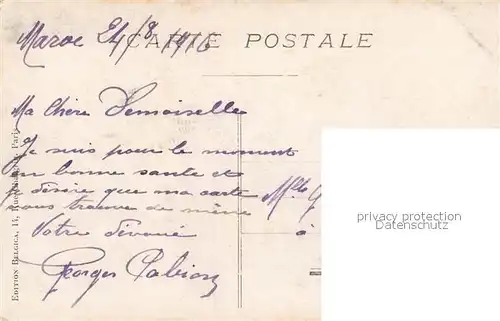 Maroc 24/8/1916
CARTE POSTALE
Ma Chère Demoiselle
Je suis pour le moment
en bonne sante et
je désire que ma carte
vous trouve de même
Votre dévoué
Georges
Mlle G
à
EDITION BELGICA, 17, Paris
privacy protection
Datenschutz